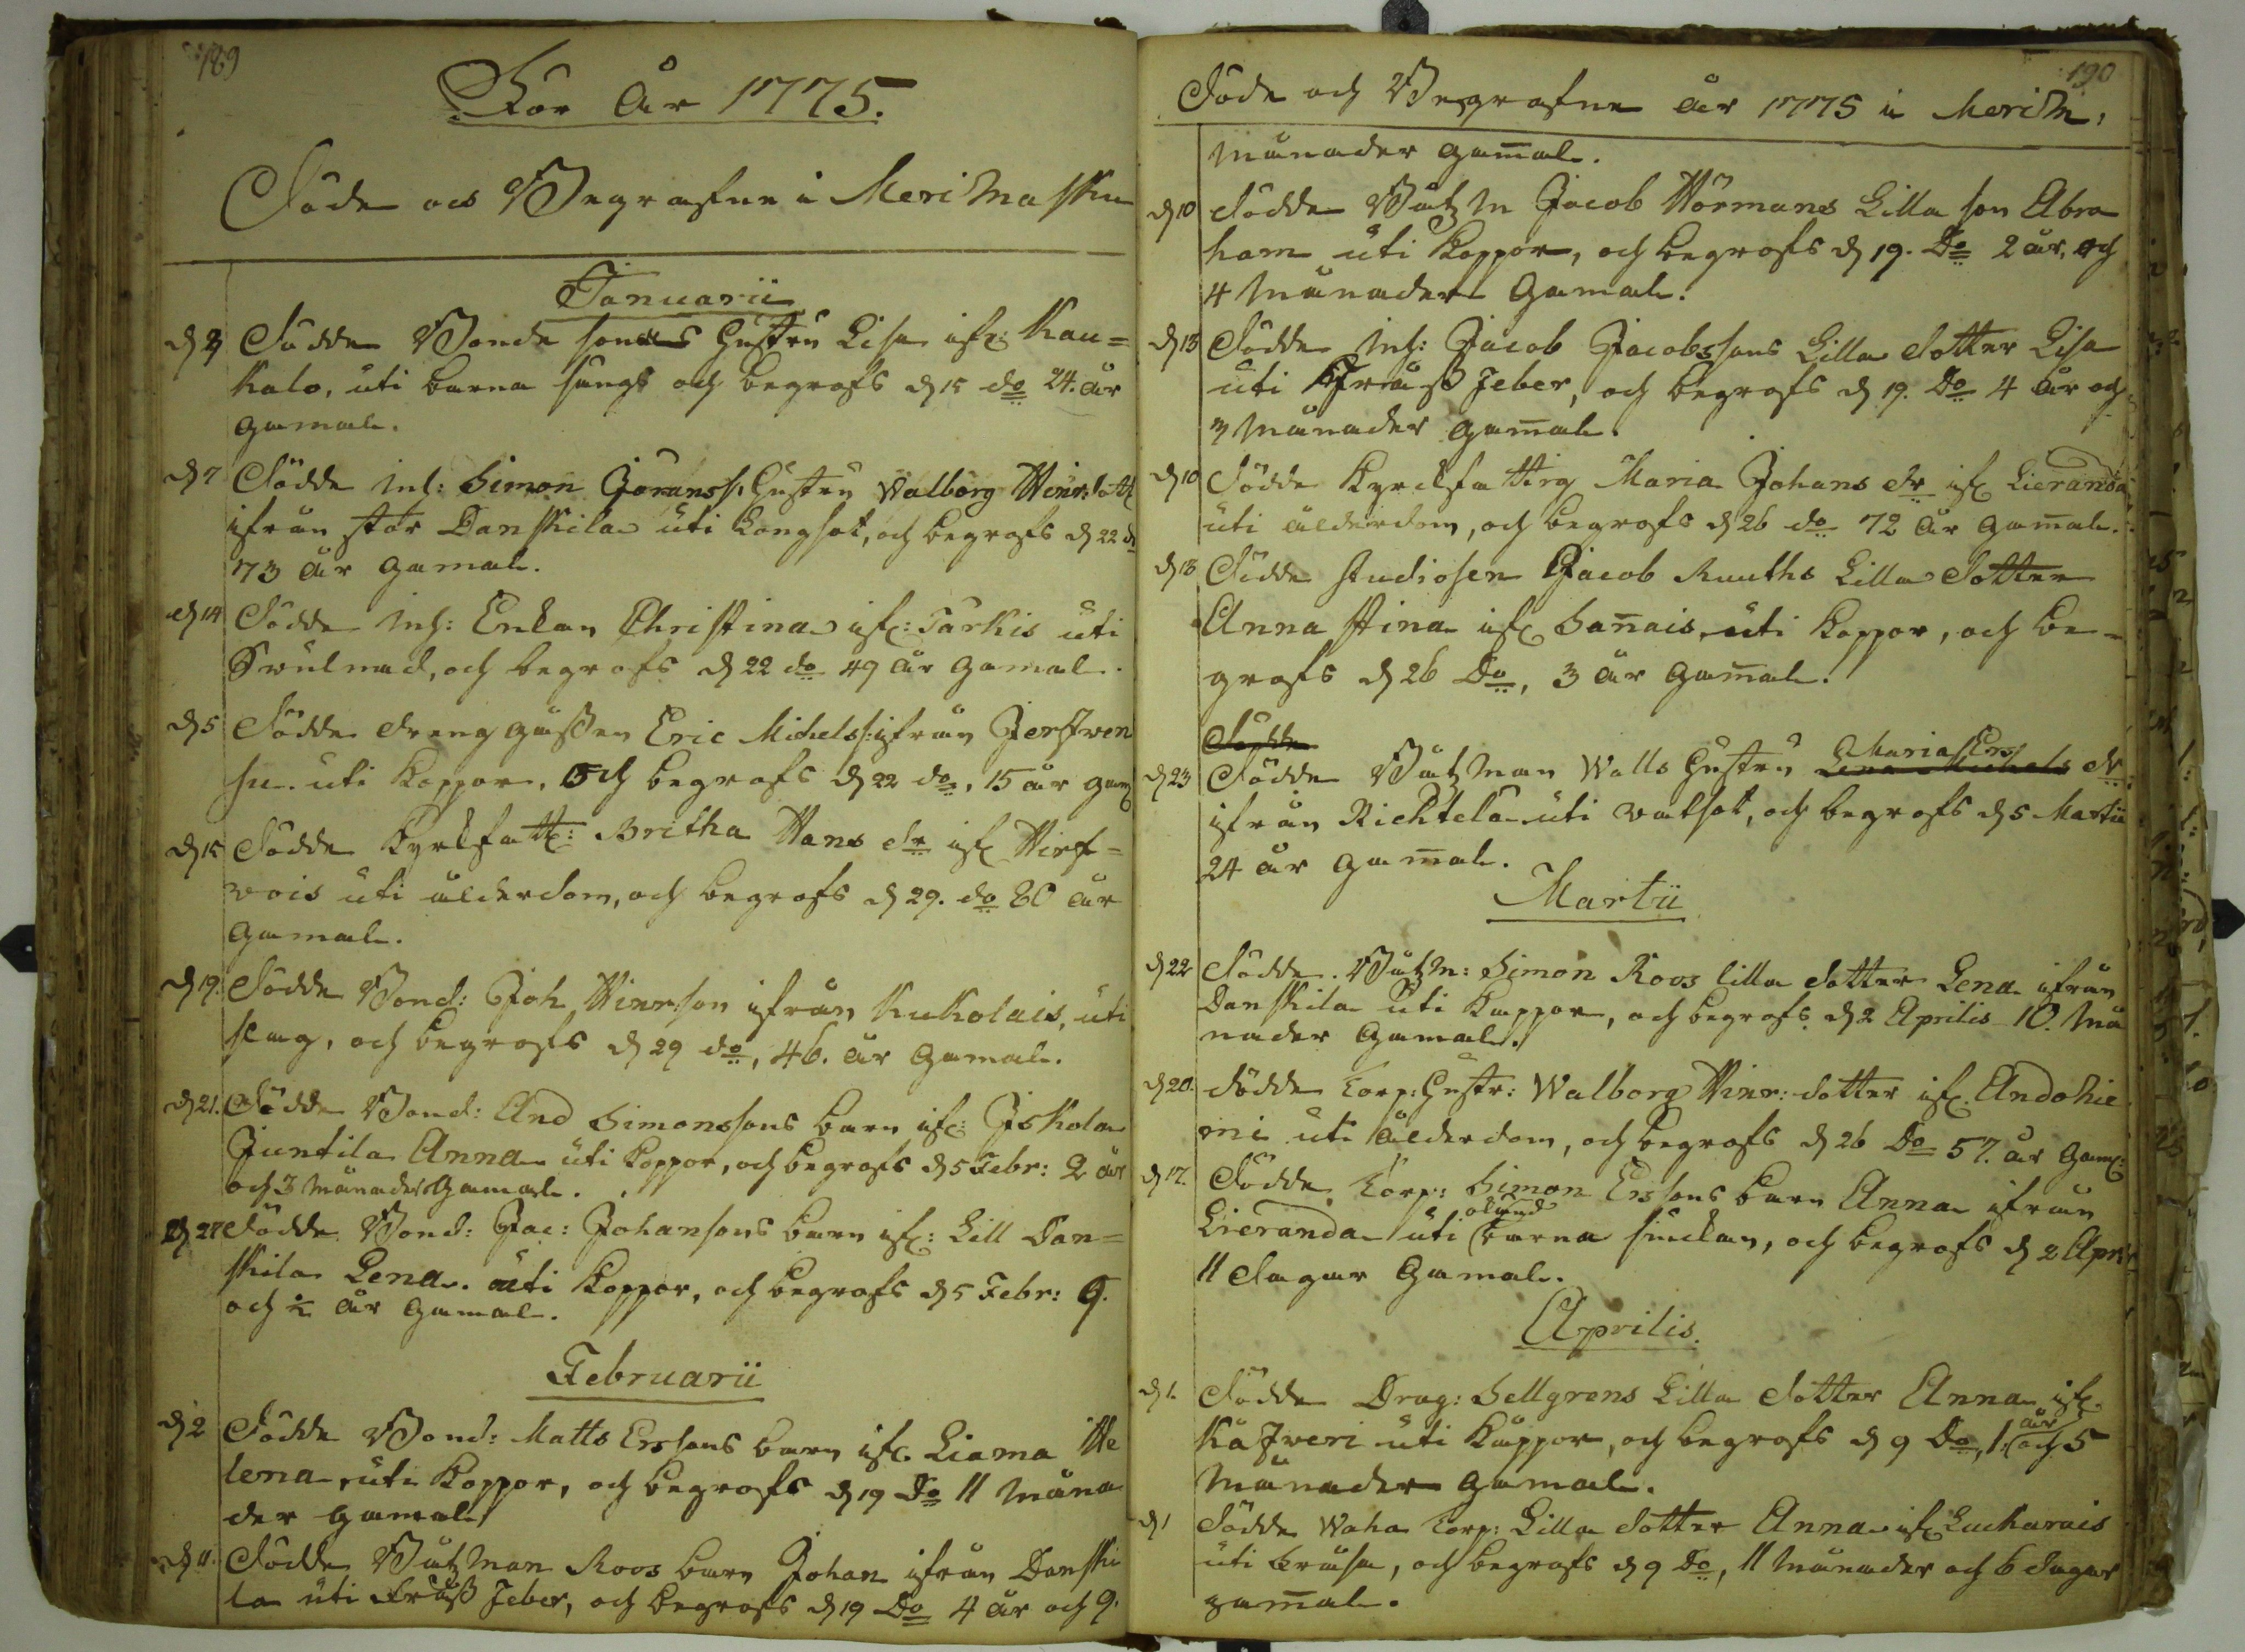 189
För År 1775.
Döde och Begrafne i Merimasku
Januarii
d 2 Dödde Bonde sones Hustru Lisa ifr: Kau=
kalo, uti barna sängs och begrofs d 15 do 24. år
gamal.
d 7 Dödde Inh: Simon Göranss: Hustru Walborg Hinr: dott
ifrån stor Danskila uti Langsot, och begrofs d 22 do
73 år gamal.
d 14 Dödde Inh: Enkan Christina ifr: Tarkis uti
Swulnad, och begrofs d 22 do 49 år gamal.
d 5 Dödde Dreng gåssen Eric Michelss: ifrån Jerfwen
su uti Koppor, och begrofs d 22 do, 15 år gam
d 15 Dödde Kyrkfatt: Britha Hans dr ifr Hirf=
vois uti ålderdom, och begrofs d 29. do 80 år
gamal.
d 19. Dödde Bond: Joh Hinrson ifrån Kukolais, uti
slag, och begrofs d 29 do, 46. år gamal.
d 21. Dödde Bond: And Simonssons barn ifr: Iskola
Juntila Anna uti Koppor, och begrofs d 5 Febr: 2 år
och 3 månader gamal.
d 27 Dödde Bond: Jac: Johansons barn ifr: Lill Dan=
skila Lena. uti Koppor, och begrofs d 5 Febr: 9.
och ½ år gamal.
Februarii
d 2 Dödde Bond: Matts Erssons barn ifr. Liama He
lena, uti Koppor, och begrofs d 19 Do 11 måna
der gamal
d 11. Dödde Båtzman Roos barn Johan ifrån Danski
la uti Fråss Feber, och begrofs d 19 Do 4 år och 9.
190
Döde och Begrafne år 1775 i Merim,
månader gamal.
d 10 Dödde Båtzm Jacob Hörmans Lilla son Abra
ham uti Koppor, och begrofs d 19. Do 2 år, och
4 månader gamal.
d 13 Dödde Inh: Jacob Jacobssons Lilla dotter Lisa
uti Fråss Feber, och begrofs d 19. Do 4 år och
3 månader gamal.
d 10 Dödde Kyrckfattig Maria Johans dr ifr Lieranda
uti ålderdom, och begrofs d 26 do 72 år gamal.
d 18 Dödde studiosen Jacob Ruuths Lilla dotter
Anna Stina ifr Sanais, uti Koppor, och be-
grofs d 26 Do, 3 år gamal.
Dödde
Maria Ers
d 23 Dödde Båtzman Walls Hustru Lena Michels dr:
ifrån Richtela uti watsot, och begrofs d 5 Martii
24 år gamal.
Martii
d 22 Dödde Båtzm: Simon Roos lilla dotter Lena ifrån
Danskila uti Koppor, och begrofs d 2 Aprilis 10. må
nader gamal.
d 20. Dödde Corp: Hustr: Walborg Hinr: dotter ifr. Andohie
mi uti ålderdom, och begrofs d 26 Do 57. år gam:
d 17. Dödde Corp: Simon Erssons barn Anna ifrån
Lieranda uti barna siuckan, och begrofs d 2 Apri
11 dagar gamal.
Aprilis.
d 1. Dödde Drag: Hellgrens Lilla dotter Anna ifr.
Käfweri uti Koppor, och begrofs d 9 Do, 1. år och 5
månader gamal.
d 1 Dödde Waha Corp: Lilla dotter Anna ifr Lucharais
uti Fråsa, och begrofs d 9 Do, 11 månader och 6 dagar
gamal.